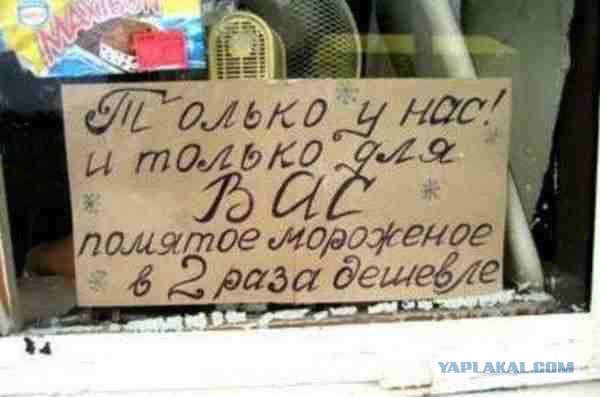 MAXIBON
Только у нас!
и только для
ВАС
помятое мороженое
в 2 раза дешевле
YAPLAKAL.COM